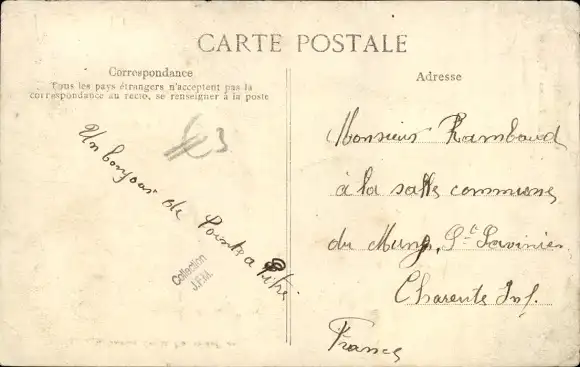 CARTE POSTALE
Correspondance
Tous les pays étrangers n'acceptent pas la
correspondance au recto, se renseigner à la poste
Un bonjour de Pointe a Pitre
Collection
J.F.M.
Adresse
Monsieur Rambaud
à la salle commune
du Mung, St Savinien
Charente Inf.
France